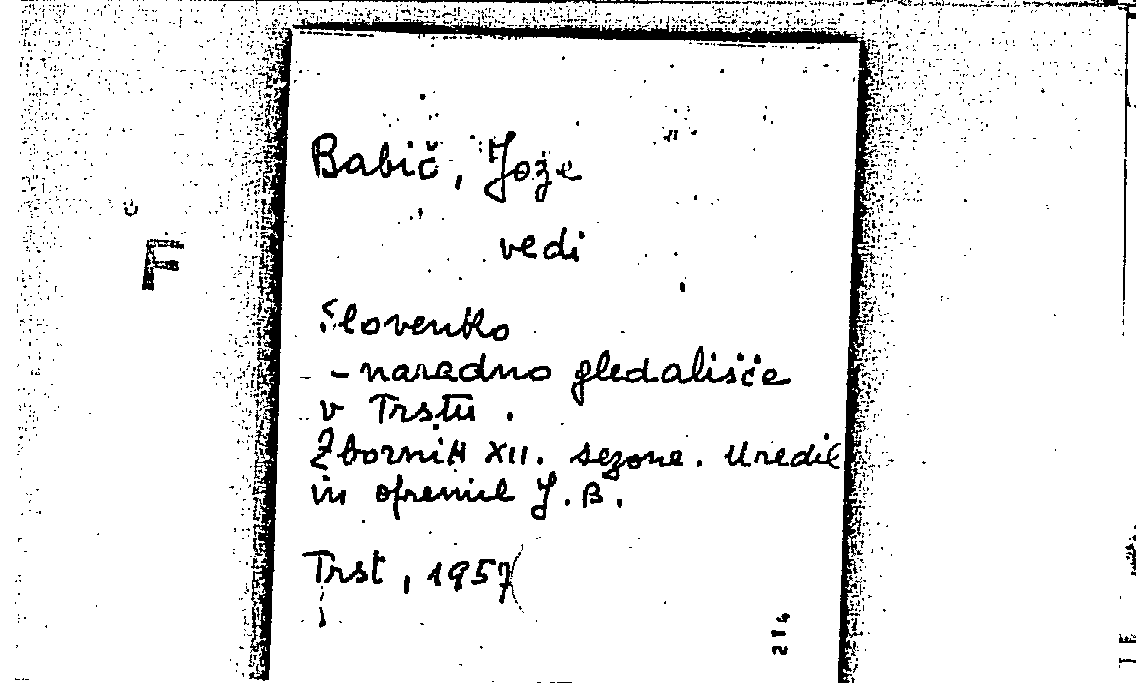 Babič, Jože
vedi
F
Slovensko
- narodno gledališče
v Trstu.
Zbornik XII. sezone. Uredil
in opremil J. B.
Trst, 1957
214